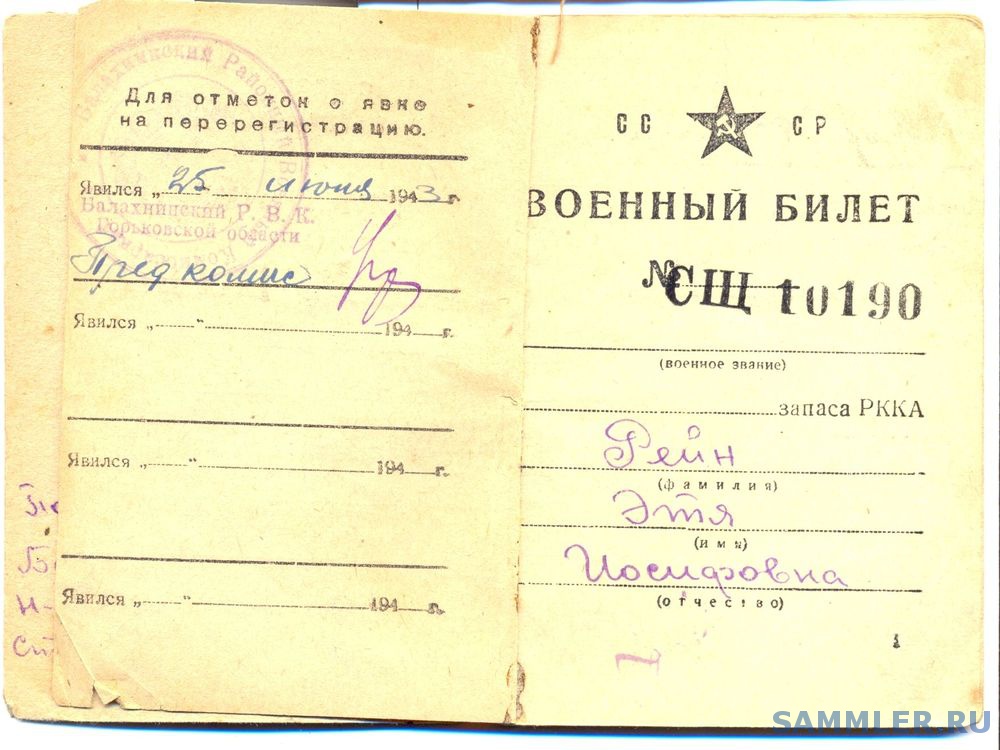 Балахнинский Район
Для отметок о явке
на перерегистрацию.
Явился „25 июня 1943 г.
Балахнинский Р. В. К.
Горьковской области
Пред комис
Явился „ “ 194 г.
Явился „ “ 194 г.
Явился „ “ 194 г.
СС СР
ВОЕННЫЙ БИЛЕТ
№ СЩ 10190
(военное звание)
запаса РККА
Рейн
(фамилия)
Этя
(имя)
Иосифовна
(отчество)
1
SAMMLER.RU